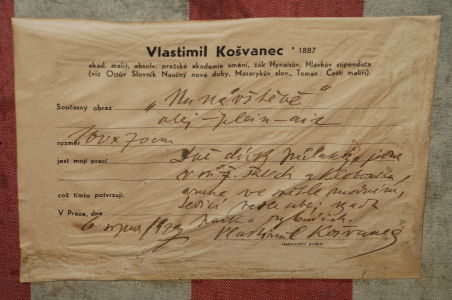 Vlastimil Košvanec * 1887
akad. malíř, absolv. pražské akademie umění, žák Hynaisův, Hlávkův stipendista
(viz Ottův Slovník Naučný nové doby, Masarykův slov., Toman: Čeští malíři).
Současný obraz „Na návštěvě“
olej - plein-air
rozměr 100 x 70 cm
jest mojí prací Dvě dívky jsou
v a klobouku
což tímto potvrzuji. ve světle modrém,
sedící vedle sebe
V Praze, dne
6. srpna
Vlastimil Košvanec
vlastnoruční podpis